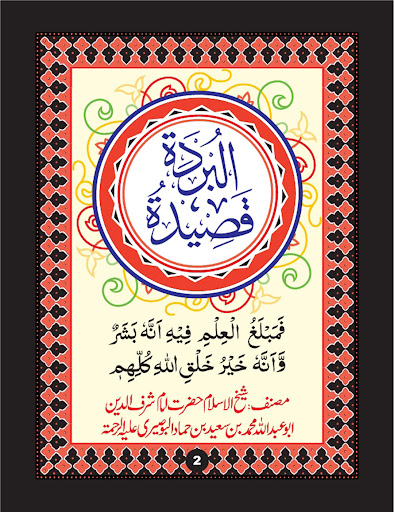 قَصِيْدَةُ
الْبُرْدَة
فَمَبْلَغُ الْعِلْمِ فِيْهِ اَنَّهٗ بَشَرٌ
وَاَنَّهٗ خَيْرُ خَلْقِ اللهِ كُلِّهِمٖ
مصنف: شیخ الاسلام حضرت امام شرف الدین
ابو عبد اللہ محمد بن سعید بن حماد البوصیری علیہ الرحمۃ
2